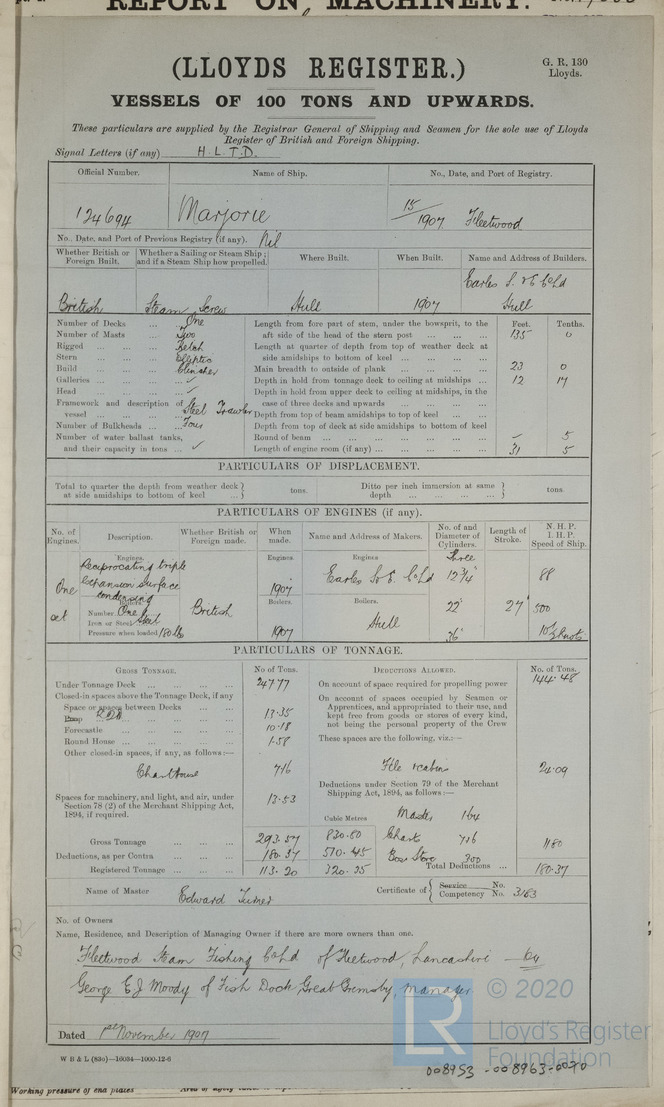 REPORT ON MACHINERY.
(LLOYDS REGISTER.)
G. R. 130
Lloyds.
VESSELS OF 100 TONS AND UPWARDS.
These particulars are supplied by the Registrar General of Shipping and Seamen for the sole use of Lloyds
Register of British and Foreign Shipping.
Signal Letters (if any) H.L.T.D.
Official Number. Name of Ship. No., Date, and Port of Registry.
124694 Marjorie 15/1907 Fleetwood
No., Date, and Port of Previous Registry (if any). Nil
Whether British or Foreign Built. Whether a Sailing or Steam Ship; and if a Steam Ship how propelled. Where Built. When Built. Name and Address of Builders.
British Steam Screw Hull 1907 Earles S. & E. Co Ld Hull
Number of Decks ... One
Number of Masts ... Two
Rigged ... Ketch
Stern ... Elliptic
Build ... Clincher
Galleries ... ✓
Head ... ✓
Framework and description of vessel ... Steel Trawler
Number of Bulkheads ... Four
Number of water ballast tanks, and their capacity in tons ... ✓
Feet. Tenths.
Length from fore part of stem, under the bowsprit, to the aft side of the head of the stern post ... 135 0
Length at quarter of depth from top of weather deck at side amidships to bottom of keel ...
Main breadth to outside of plank ... 23 0
Depth in hold from tonnage deck to ceiling at midships ... 12
Depth in hold from upper deck to ceiling at midships, in the case of three decks and upwards ...
Depth from top of beam amidships to top of keel ...
Depth from top of deck at side amidships to bottom of keel
Round of beam ... - 5
Length of engine room (if any) ... 31 5
PARTICULARS OF DISPLACEMENT.
Total to quarter the depth from weather deck at side amidships to bottom of keel ... tons.
Ditto per inch immersion at same depth ... tons
PARTICULARS OF ENGINES (if any).
No. of Engines. Description. Whether British or Foreign made. When made. Name and Address of Makers. No. of and Diameter of Cylinders. Length of Stroke. N. H. P. I. H. P. Speed of Ship.
Engines. Engines. Engines Three
One set Reciprocating triple expansion surface condensing British 1907 Earles S. & E. Co Ld 12¾" 88
Boilers. Boilers. Boilers.
Number One 22" 27" 500
Iron or Steel Steel Hull
Pressure when loaded 180 lbs 1907 36" 10½ knots
PARTICULARS OF TONNAGE.
GROSS TONNAGE. No of Tons.
Under Tonnage Deck ... 247.77
Closed-in spaces above the Tonnage Deck, if any
Space or spaces between Decks ...
Poop ... 13.35
Forecastle ... 10.18
Round House ... 1.58
Other closed-in spaces, if any, as follows:—
Chart House 7.16
Spaces for machinery, and light, and air, under Section 78 (2) of the Merchant Shipping Act, 1894, if required. 13.53
Cubic Metres
Gross Tonnage ... 293.57 830.80
Deductions, as per Contra ... 180.37 510.45
Registered Tonnage ... 113.20 320.35
DEDUCTIONS ALLOWED. No. of Tons.
On account of space required for propelling power 144.48
On account of spaces occupied by Seamen or Apprentices, and appropriated to their use, and kept free from goods or stores of every kind, not being the personal property of the Crew
These spaces are the following, viz:—
F'cle & cabin 24.09
Deductions under Section 79 of the Merchant Shipping Act, 1894, as follows:—
Master 1.64
Chart 7.16
Bosn Store 3.00 11.80
Total Deductions ... 180.37
Name of Master Edward Turner
Certificate of Service No. Competency No. 3183
No. of Owners
Name, Residence, and Description of Managing Owner if there are more owners than one.
Fleetwood Steam Fishing Co Ld of Fleetwood, Lancashire
George E J Moody of Fish Dock, Great Grimsby, Manager
Dated 1st November 1907
W B & L (83o)—16034—1000-12-6
© 2020
LR
Lloyd's Register
Foundation
008953-008963-0070
Working pressure of end plates